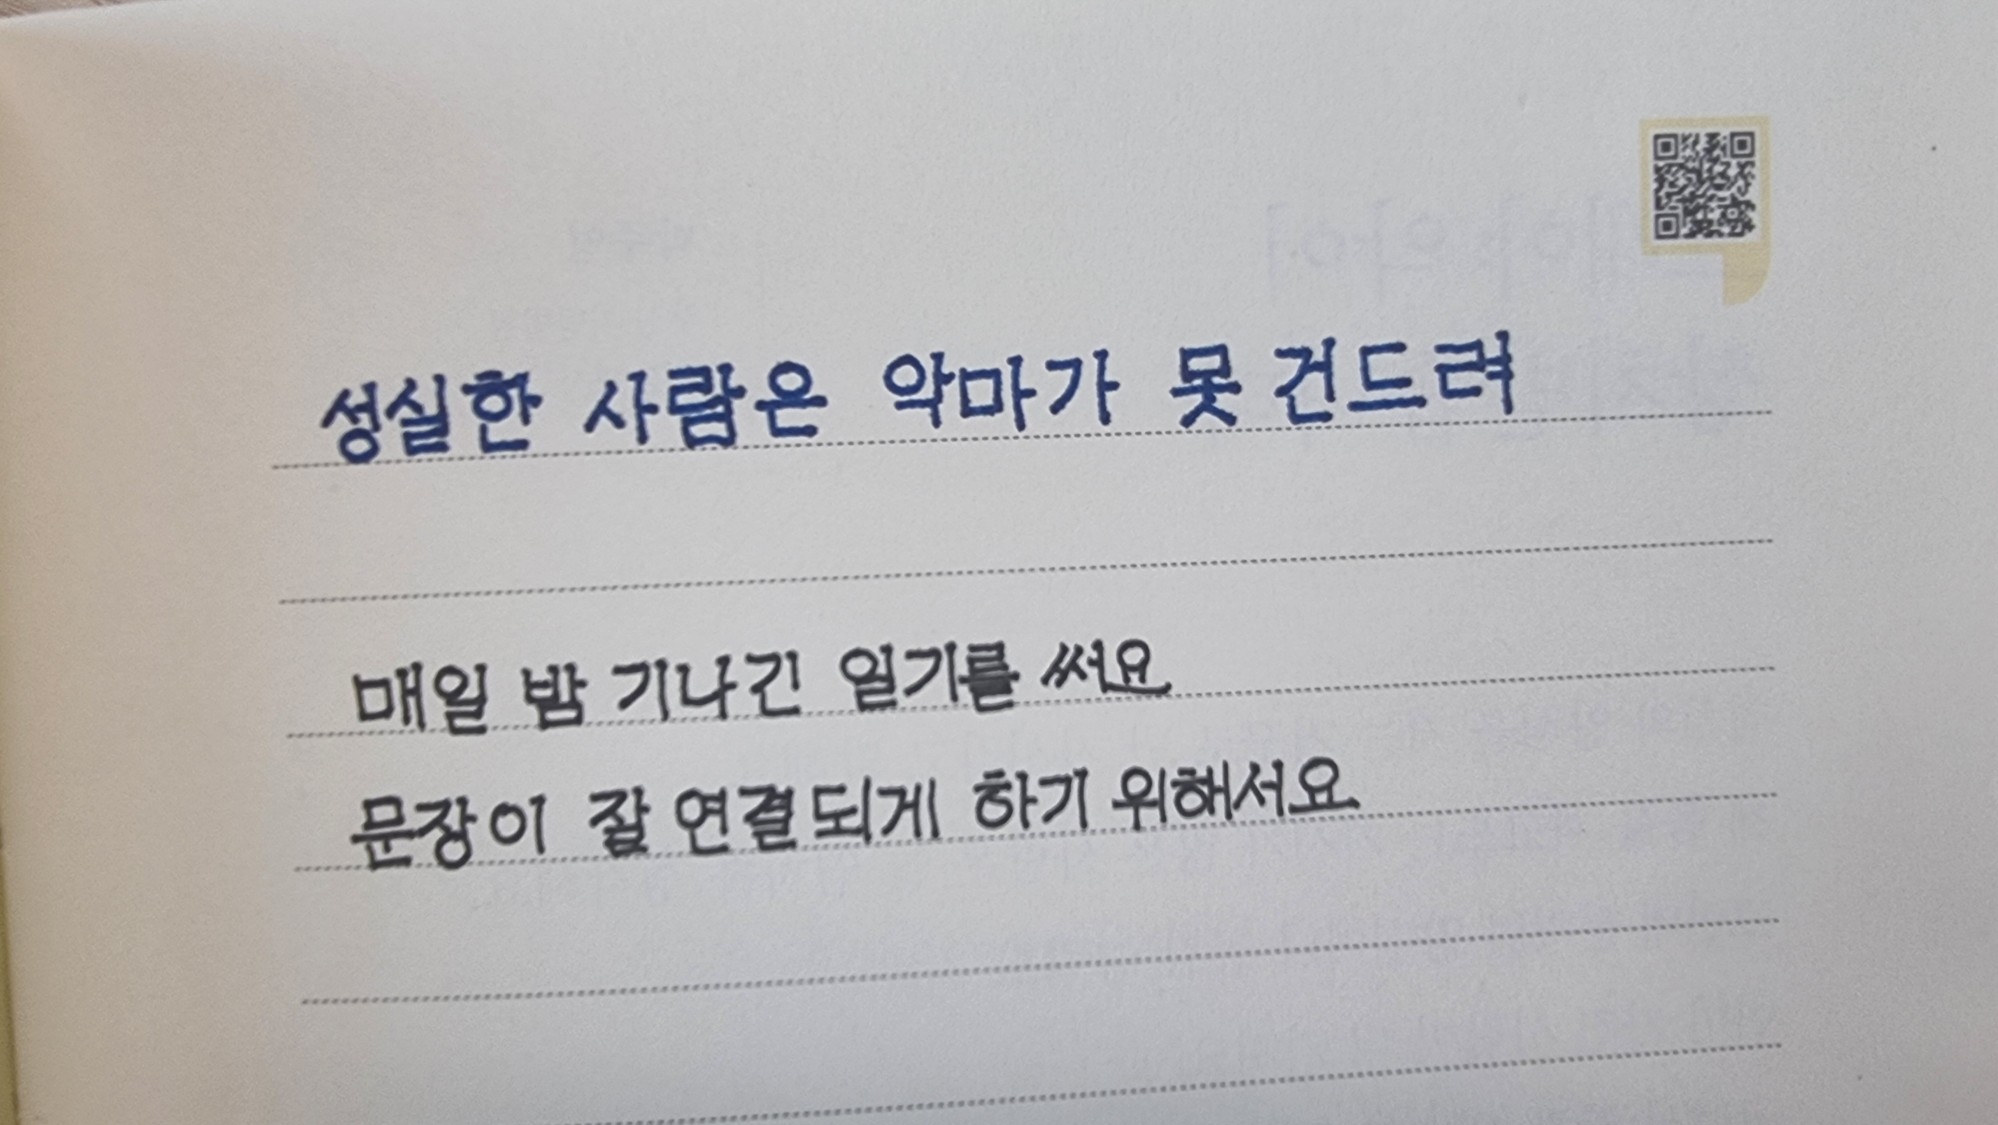 성실한 사람은 악마가 못 건드려
매일 밤 기나긴 일기를 써요
문장이 잘 연결되게 하기 위해서요